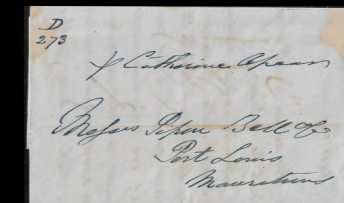 D
273
p Catherine Apcar
Messrs Pipon Bell & Co
Port Louis
Mauritius